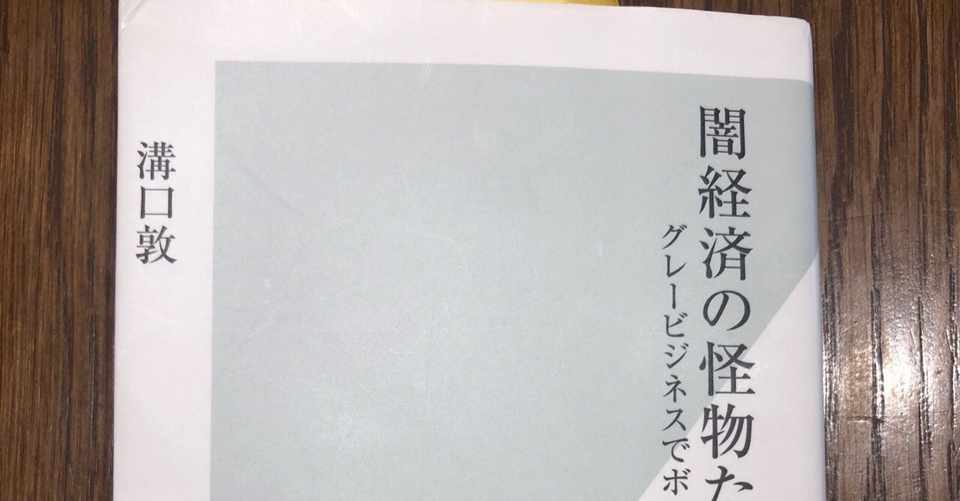 闇経済の怪物た
グレービジネスでボ
溝口敦